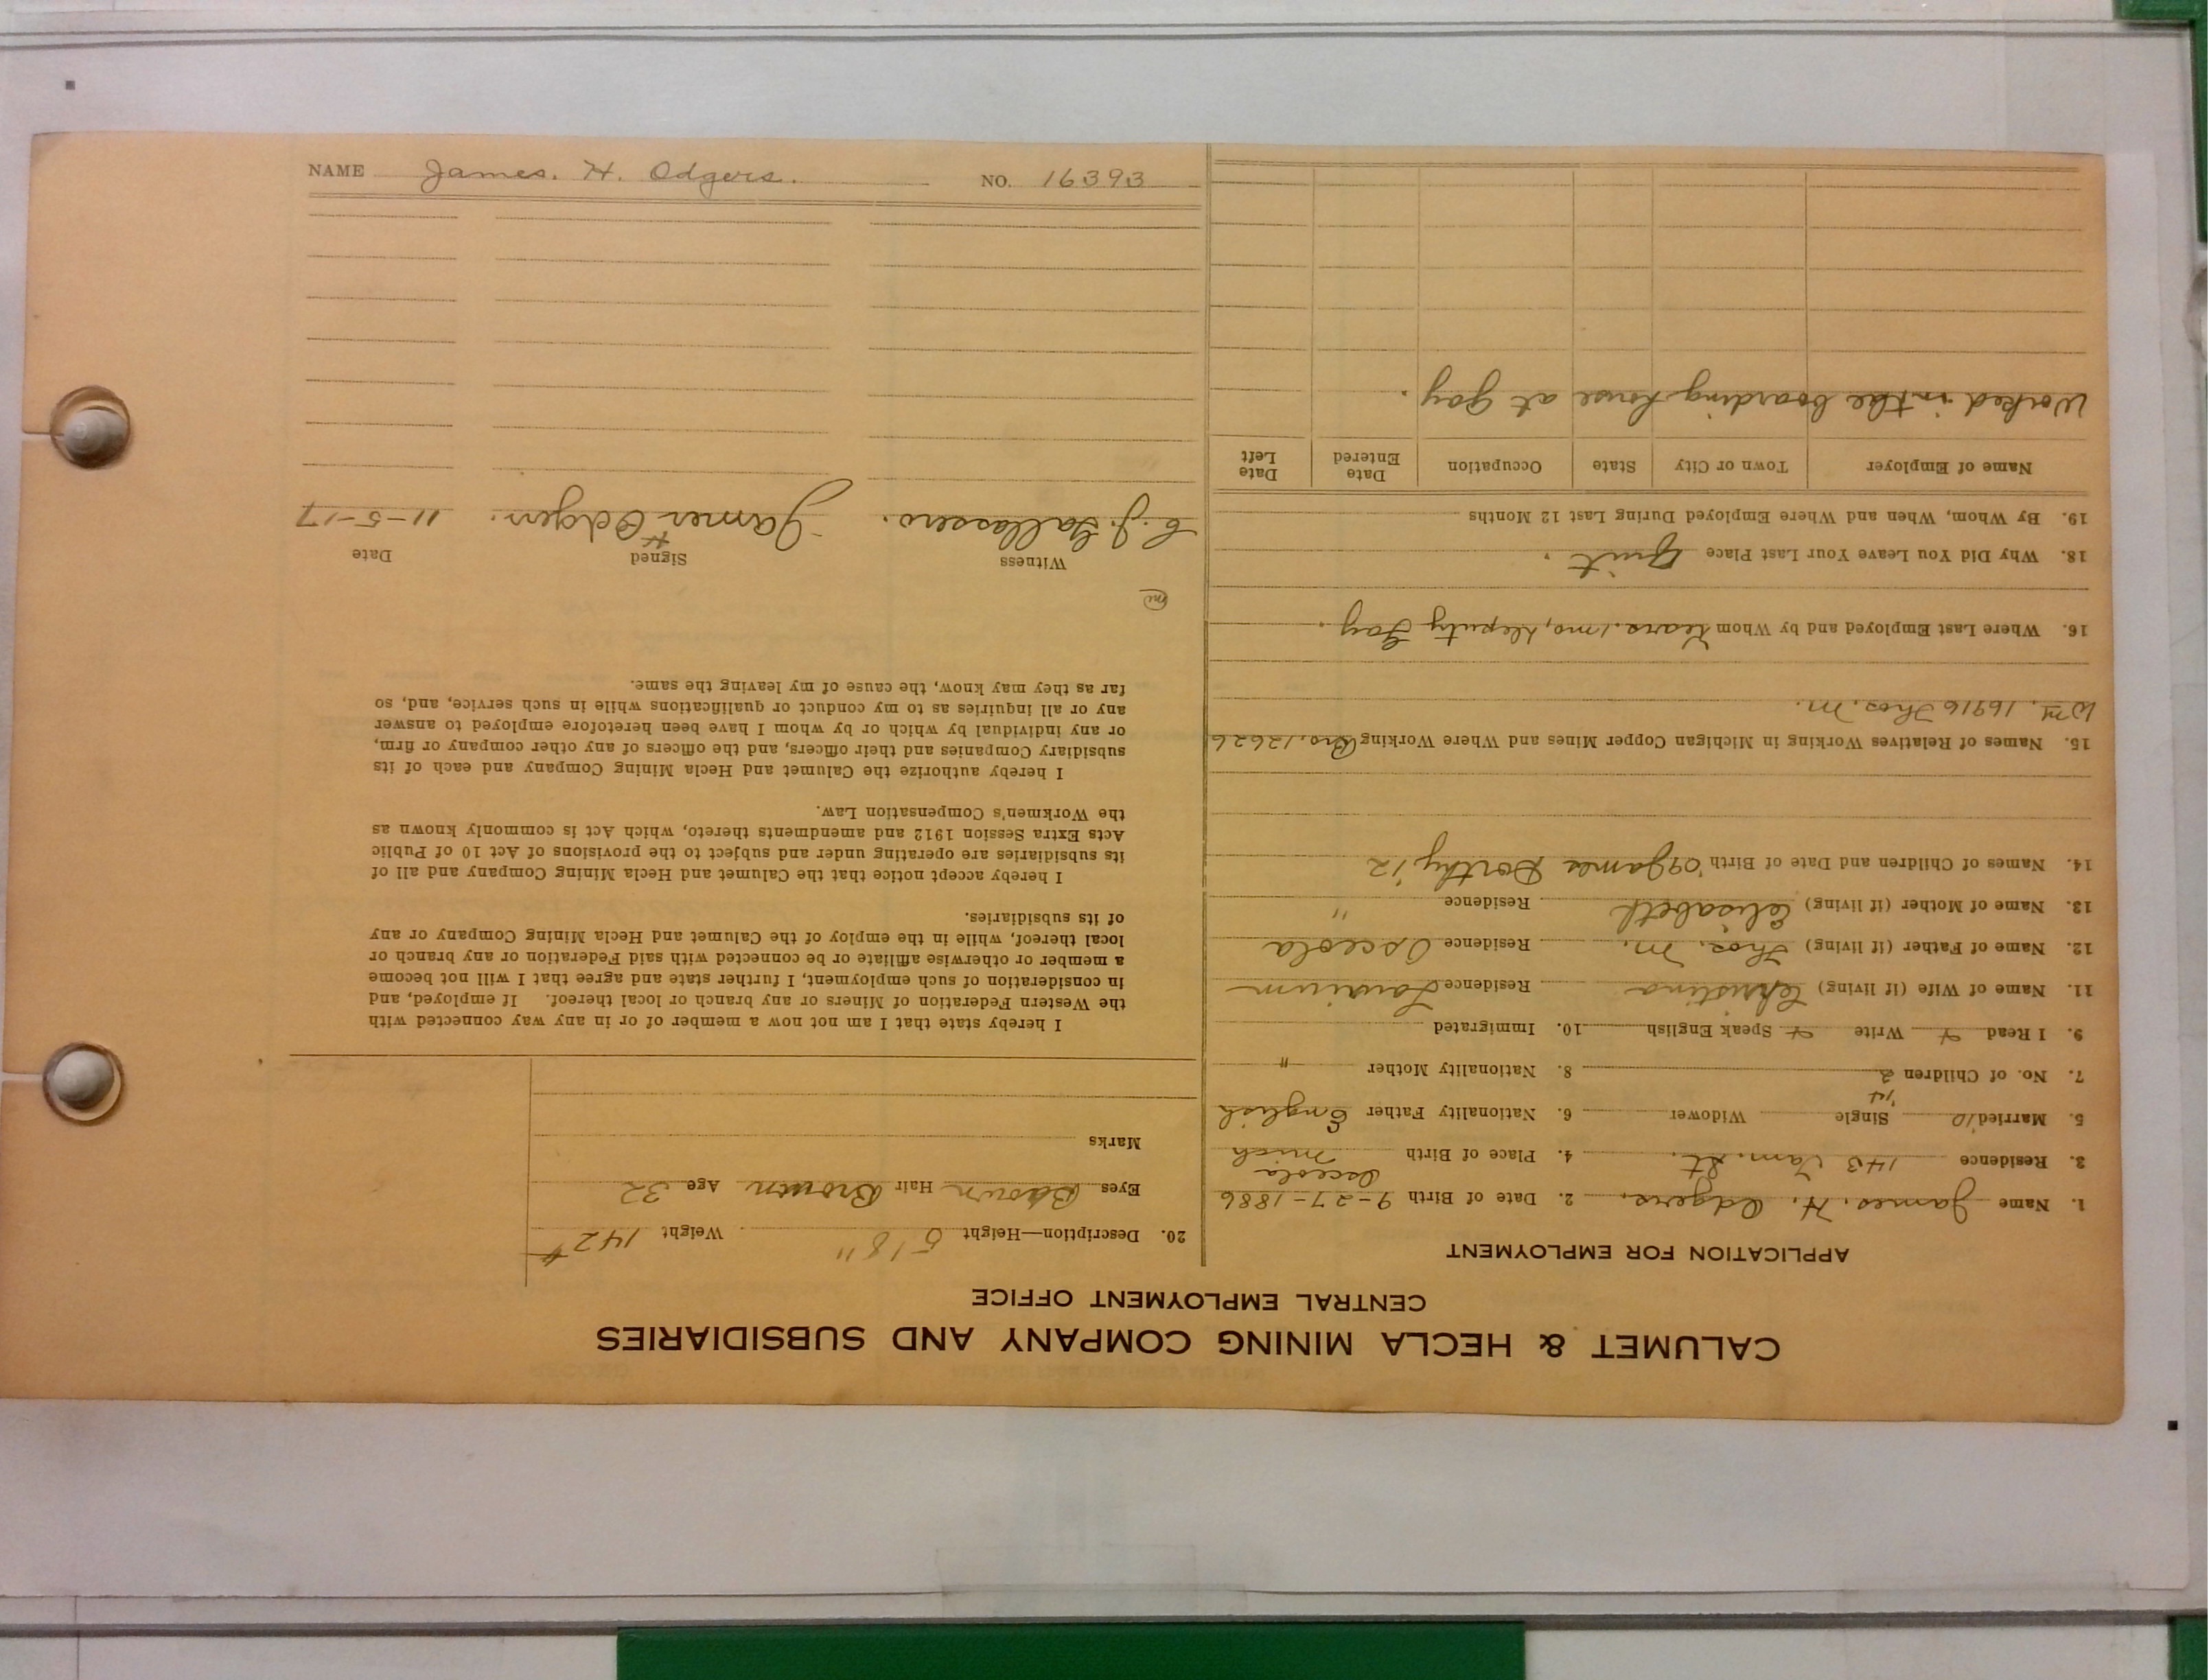 CALUMET & HECLA MINING COMPANY AND SUBSIDIARIES
CENTRAL EMPLOYMENT OFFICE
APPLICATION FOR EMPLOYMENT
1. Name James. H. Odgers. 2. Date of Birth 9-27-1886
3. Residence 143 Tam. St. 4. Place of Birth Osceola Mich
5. Married 10 Single 1st Widower 6. Nationality Father English
7. No. of Children 2 8. Nationality Mother "
9. I Read Write Speak English 10. Immigrated
11. Name of Wife (if living) Christina Residence Laurium
12. Name of Father (if living) Thos. M. Residence Osceola
13. Name of Mother (if living) Elisabeth Residence "
14. Names of Children and Date of Birth '09 James Dorthy '12
15. Names of Relatives Working in Michigan Copper Mines and Where Working Bro. 12626
Wm. 16916 Thos. M.
16. Where Last Employed and by Whom 1 mo, Deputy Gay.
18. Why Did You Leave Your Last Place Quit.
19. By Whom, When and Where Employed During Last 12 Months
Name of Employer Town or City State Occupation Date Entered Date Left
Worked in the boarding house at Gay.
20. Description—Height 5' 8" Weight 142 #
Eyes Brown Hair Brown Age 32
Marks
I hereby state that I am not now a member of or in any way connected with
the Western Federation of Miners or any branch or local thereof. If employed, and
in consideration of such employment, I further state and agree that I will not become
a member or otherwise affiliate or be connected with said Federation or any branch or
local thereof, while in the employ of the Calumet and Hecla Mining Company or any
of its subsidiaries.
I hereby accept notice that the Calumet and Hecla Mining Company and all of
its subsidiaries are operating under and subject to the provisions of Act 10 of Public
Acts Extra Session 1912 and amendments thereto, which Act is commonly known as
the Workmen's Compensation Law.
I hereby authorize the Calumet and Hecla Mining Company and each of its
subsidiary Companies and their officers, and the officers of any other company or firm,
or any individual by which or by whom I have been heretofore employed to answer
any or all inquiries as to my conduct or qualifications while in such service, and, so
far as they may know, the cause of my leaving the same.
Witness Signed Date
James H Odgers. 11-5-17
NAME James. H. Odgers. NO. 16393